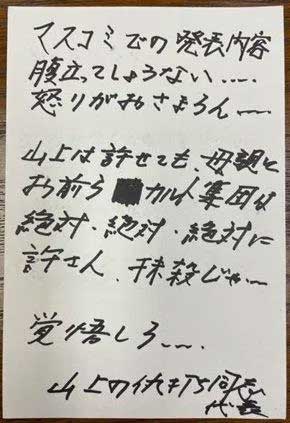 マスコミでの発表内容
腹立ってしょうない....
怒りがおさまらん〜
山上は許せても、母親と
お前らカルト集団は
絶対・絶対・絶対に
許さん、抹殺じゃ〜
覚悟しろ....
山上の仇打ち同志
代表